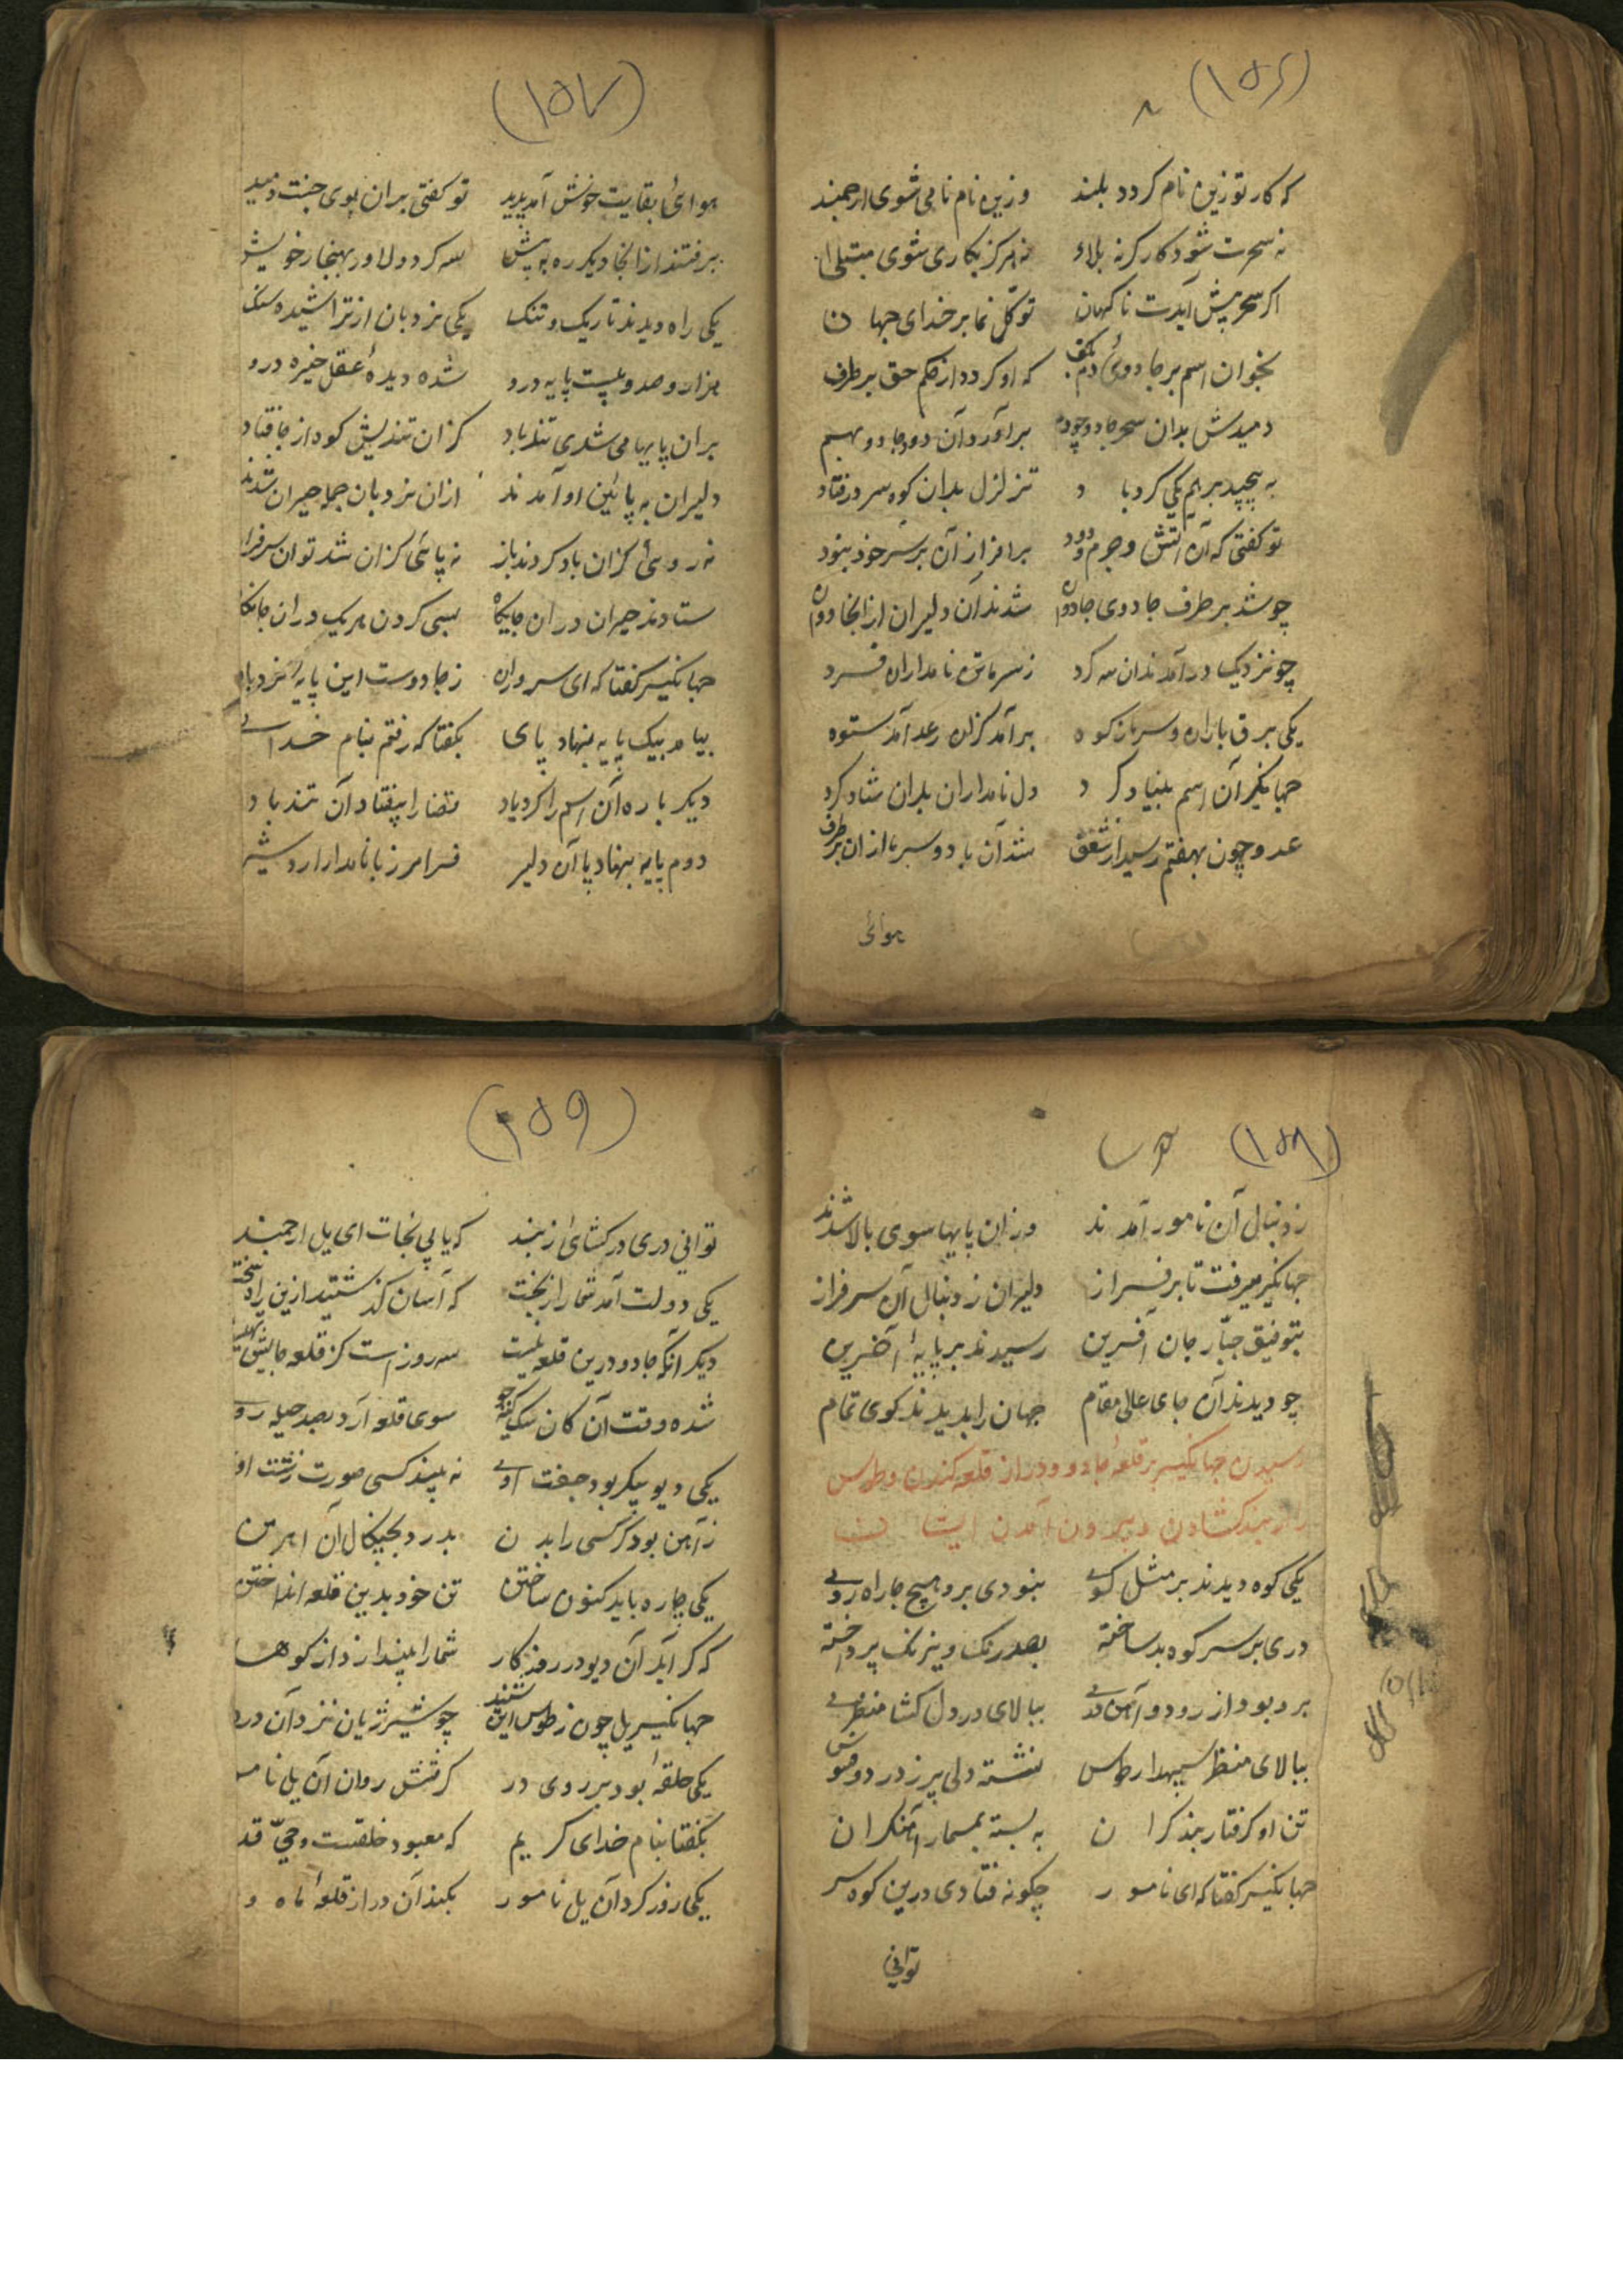 (۱۵۶)
که کار تو زین نام کردد بلند وزین نام نامی شوی ارجمند
نه سحرت شود کارکر نه بلاء نه هرکز بکاری شوی مبتلا
اکر سحر پیش آیدت ناکهان توکل نما بر خدای جهان
بخوان اسم بر جادوئ دم بکف که او کردد از حکم حق بر طرف
دمیدش بدان سحر جادو چو دم برآورد آن دود جادو بهم
به پیچید برهم یکی کرد باد تزلزل بدان کوه سر در فتاد
تو کفتی که آن آتش و جرم و دود بر افراز آن بر سر خود نبود
چو شد بر طرف جادوی جادوان شدند آن دلیران از انجا دوان
چو نزدیک در آمدند ان سه کرد ز سر مانن نامداران فسرد
یکی برق باران و سر باز کوه برآمد کزان رعد آمد ستوه
جهانکیر آن اسم بنیاد کرد دل نامداران بدان شاد کرد
عدو چون بهفتم رسید از شفق شد آن باد و سرما از ان بر طرف
هوائی
(۱۵۷)
هوائی بقایت خوش آمد پدید تو کفتی بران بوی جنت دمید
برفتند از انجا دیکر ره به پیش سه کرد دلاور بهنجار خویش
یکی راه دیدند تاریک و تنک یکی نزدبان از تراشیده سنک
هزار و صد و بیست پایه درو شده دیدهٔ عقل خیره درو
بران پایها می شدی تند باد کزان تندیش کوه از جا فتاد
دلیران به پائین او آمدند ازان نزدبان جمله حیران شدند
نه روئی کزان باد کردند باز نه پائی کزان شد توان سرفراز
ستادند حیران دران جایکاه بسی کردن هریک دران جا نکاه
جهانکیر کفتا که ای سروران ز جادوست این پایهٔ نردبان
بیامد بیک پایه بنهاد پای بکفتا که رفتم بنام خدای
دیکر باره آن اسم را کرد یاد قضا را بیفتاد آن تند باد
دوم پایه بنهاد پا آن دلیر فرامرز با نامدار اردشیر
(۱۵۸)
ز دنبال آن نامور آمدند وزان پایها سوی بالا شدند
جهانکیر میرفت تا بر فراز دلیران ز دنبال آن سرفراز
بتوفیق جبار جان آفرین رسیدند بر پایهٔ آخرین
چو دیدند آن جای عالی مقام جهان را بدیدند کوی تمام
رسیدن جهانکیر بر قلعهٔ جادو و در از قلعه کندن و طوس
را از بند کشادن و بیرون آمدن ایشان
یکی کوه دیدند بر مثل کوی نبودی برو هیچ جا راه روی
دری بر سر کوه بد ساخته بصد رنک و نیرنک پرداخته
برو بود از رود و آهن دری ببالای در دل کشا منظری
ببالای منظر سپهدار طوس نشسته دلی پر ز درد و فسوس
تن او کرفتار بند کران به بسته بمسمار آهنکران
جهانکیر کفتا که ای نامور چکونه فتادی درین کوه سر
توانی
(۱۵۹)
توانی دری در کشائ ز بند که یابی نجات ای یل ارجمند
یکی دولت آمد شما را ز بخت که آسان کذشتید ازین راه سخت
دیکر آنکه جادو درین قلعه نیست سه روز است کز قلعه جایش تهیست
شده وقت آن کان سک کینه جو سوی قلعه آرد بصد حیله رو
یکی دیو پیکر بود جفت اوی نه بیند کسی صورت زشت او
ز آهن بود کر کسی را بدن بدرد بچنکال آن اهرمن
یکی چاره باید کنون ساختن تن خود بدین قلعه انداختن
که کر آید آن دیو در روزکار شما را بیندازد از کوهسا
جهانکیر یل چون ز طوس این شنید چو شیر ژیان نزد آن در
یکی حلقهٔ بود بر روی در کرفتش روان آن یل نامـ
بکفتا بنام خدای کریم که معبود خلقست و حی قد
یکی زور کرد آن یل نامور بکند آن در از قلعهٔ ماه و